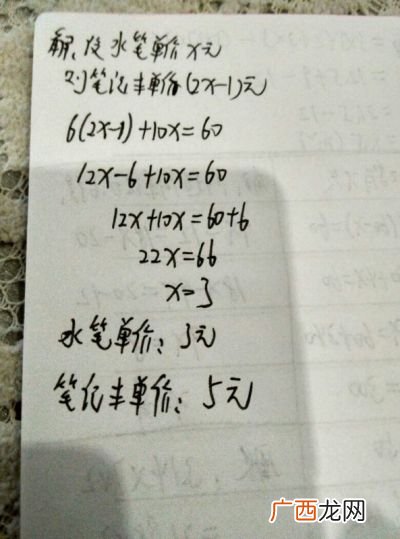 解:设水笔单价x元
则笔记本单价(2x-1)元
6(2x-1)+10x=60
12x-6+10x=60
12x+10x=60+6
22x=66
x=3
水笔单价:3元
笔记本单价:5元
广西龙网